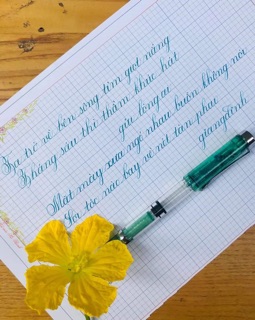 Ta trở về bên sông tìm giọt nắng
Tháng sáu thì thầm khúc hát
giữa lòng ai
Mặt mày xưa ngỡ nhau buồn không nói
Sợi tóc nào bay về nét tàn phai
giangdinh